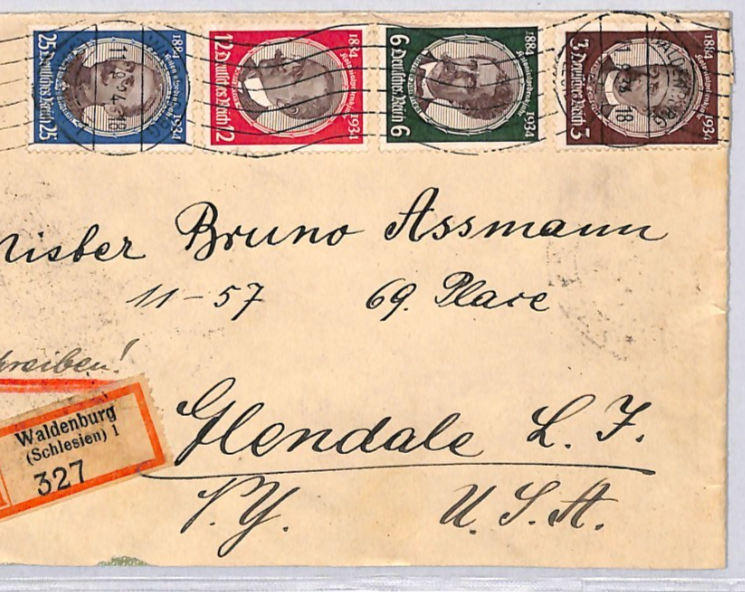 25 Deutsches Reich 25 1884 1934
12 Deutsches Reich 12 1884 1934
6 Deutsches Reich 6 1884 1934
3 Deutsches Reich 3 1884 1934
Mister Bruno Assmann
11-57 69. Place
hreiben!
Waldenburg
(Schlesien) 1
327
Glendale L. I.
N.Y. U.S.A.